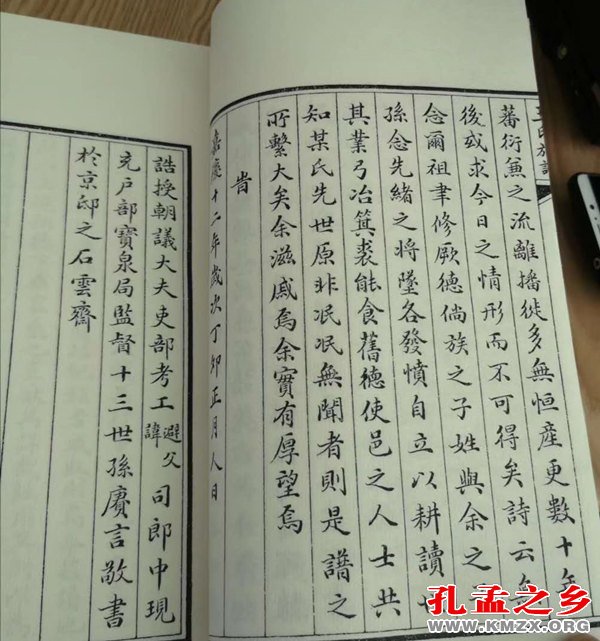 蕃衍兼之流離播徙多無恒産更數十年
後或求今日之情形而不可得矣詩云無
念爾祖聿修厥德倘族之子姓與余之
孫念先緒之將墜各發憤自立以耕讀
其業弓冶箕裘能食舊德使邑之人士共
知某氏先世原非泯泯無聞者則是譜之
所繫大矣余滋戚焉余實有厚望焉
旹
嘉慶十二年歲次丁卯正月人日
誥授朝議大夫吏部考工避父諱司郎中現
充戶部寶泉局監督十三世孫賡言敬書
於京邸之石雲齋
孔孟之乡
WWW.KMZX.ORG